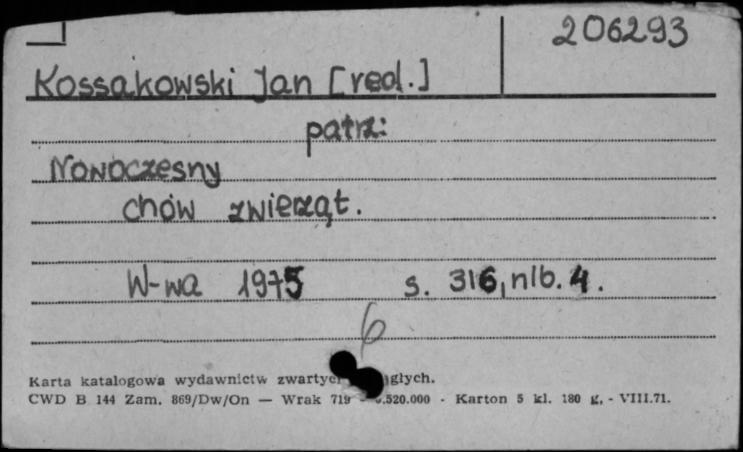 206293
Kossakowski Jan [red.]
patrz:
Nowoczesny
chów zwierząt.
W-wa 1975 s. 316, nlb. 4.
6
Karta katalogowa wydawnictw głych.
CWD B 144 Zam. 869/Dw/On — Wrak 719 .520.000 - Karton 5 kl. 180 g. - VIII.71.